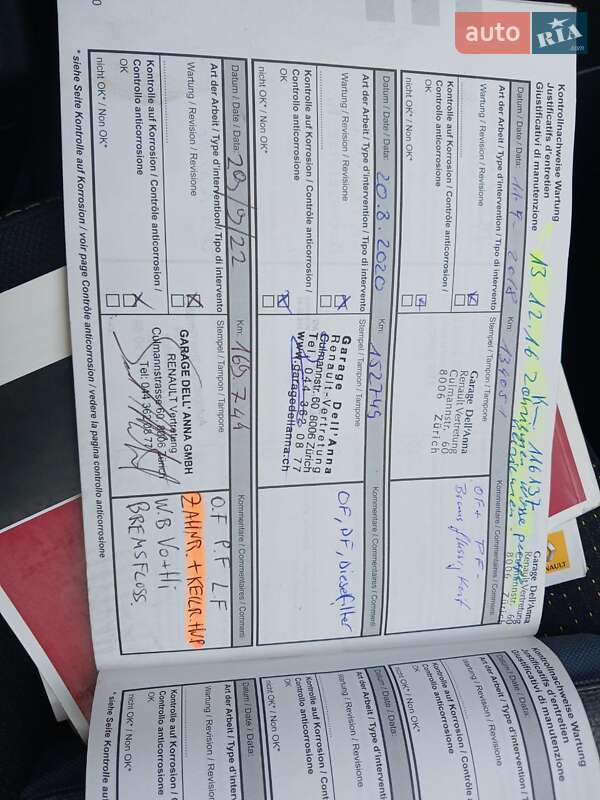 auto RIA
Kontrollnachweise Wartung
Justificatifs d'entretien
Giustificativi di manutenzione
13.12.16 K 116137
Garage Dell'Anna
Renault Vertretung
8006 Zürich
Datum / Date / Data: 2018
Km:
Art der Arbeit / Type d'intervention / Tipo di intervento
Stempel / Tampon / Tampone
Kommentare / Commentaires / Commenti
Wartung / Revision / Revisione
Kontrolle auf Korrosion / Contrôle anticorrosion /
Controllo anticorrosione
OK
nicht OK* / Non OK*
Garage Dell'Anna
Renault Vertretung
Culmannstr. 60
8006 Zürich
OF + P.F.
Datum / Date / Data: 20.8.2020
Km: 152749
Art der Arbeit / Type d'intervention / Tipo di intervento
Stempel / Tampon / Tampone
Kommentare / Commentaires / Commenti
Wartung / Revision / Revisione
Kontrolle auf Korrosion / Contrôle anticorrosion /
Controllo anticorrosione
OK
nicht OK* / Non OK*
Garage Dell'Anna
Renault-Vertretung
Culmannstr. 60 8006 Zürich
Tel. 044 362 08 77
www.garagedellanna.ch
OF, DF, Dieselfilter
Datum / Date / Data: 29/9/22
Km: 169744
Art der Arbeit / Type d'intervention / Tipo di intervento
Stempel / Tampon / Tampone
Kommentare / Commentaires / Commenti
Wartung / Revision / Revisione
Kontrolle auf Korrosion / Contrôle anticorrosion /
Controllo anticorrosione
OK
nicht OK* / Non OK*
GARAGE DELL'ANNA GMBH
RENAULT Vertretung
Culmannstrasse 60, 8006 Zürich
Tel. 044 362 08 77
O.F P.F L.F
ZAHNR + KEILR. + WP
W.B Vo + Hi
BREMSFLÜSS.
* siehe Seite Kontrolle auf Korrosion / voir page Contrôle anticorrosion / vedere la pagina controllo anticorrosione
RENAULT
Kontrollnachweise Wartung
Justificatifs d'entretien
Giustificativi di manutenzione
Datum / Date / Data:
Art der Arbeit / Type d'intervention /
Wartung / Revision / Revisione
Kontrolle auf Korrosion / Contrôle
Controllo anticorrosione
OK
nicht OK* / Non OK*
Datum / Date / Data:
Art der Arbeit / Type d'intervention
Wartung / Revision / Revisione
Kontrolle auf Korrosion /
Controllo anticorrosione
OK
nicht OK* / Non OK*
Datum / Date / Data:
Art der Arbeit / Type d'inter
Wartung / Revision / Revis
Kontrolle auf Korrosion
Controllo anticorrosion
OK
nicht OK* / Non OK*
* siehe Seite Kontrolle auf